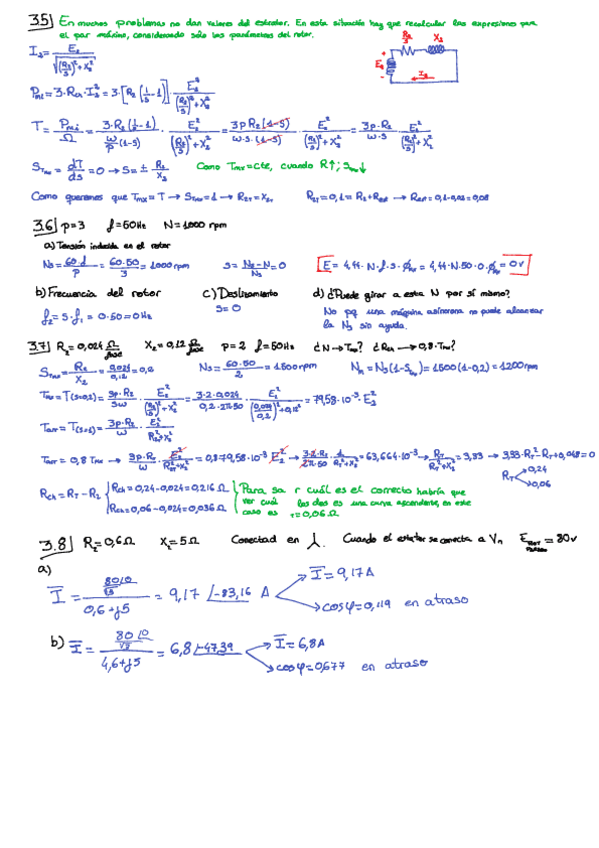 3.5| En muchos problemas no dan valores del estator. En esta situación hay que recalcular las expresiones para
el par máximo, considerando solo los parámetros del rotor.
I₂ = E₂ / √((R₂/S)² + X₂²)
R₂/S X₂
E₂
I₂
Pmi = 3·Rcn·I₂² = 3·[R₂(1/S - 1)]· E₂² / ((R₂/S)² + X₂²)
T = Pmi/Ω = 3·R₂(1/S - 1) / (ω/p (1-S)) · E₂² / ((R₂/S)² + X₂²) = 3pR₂(1-S) / (ω·S·(1-S)) · E₂² / ((R₂/S)² + X₂²) = 3p·R₂ / (ω·S) · E₂² / ((R₂/S)² + X₂²)
STmax = dT/ds = 0 → S = ± R₂/X₂ Como Tmax = cte, cuando R↑; Smax↓
Como queremos que Tmax = T → STmax = 1 → R2T = X₂, R2T = 0,1 = R₂ + Rad → Rad = 0,1 - 0,02 = 0,08
3.6| p=3 f=50Hz N=1000 rpm
a) Tensión inducida en el rotor
Ns = 60·f / p = 60·50 / 3 = 1000 rpm S = Ns - N / Ns = 0 E = 4,44·N·f·S·Φ = 4,44·N·50·0·Φ = 0V
b) Frecuencia del rotor c) Deslizamiento d) ¿Puede girar a esta N por sí mismo?
f₂ = S·f₁ = 0·50 = 0Hz S=0 No pq una máquina asíncrona no puede alcanzar
la Ns sin ayuda.
3.7| R₂ = 0,024 Ω/fase X₂ = 0,12 Ω/fase p=2 f=50Hz ¿N→Tm? ¿Rch→0,8·Tm?
STmax = R₂/X₂ = 0,024/0,12 = 0,2 Ns = 60·50/2 = 1500 rpm Nm = Ns(1-Sm) = 1500(1-0,2) = 1200rpm
Tm = T(S=0,2) = 3p·R₂/Sω · E₂² / ((R₂/S)² + X₂²) = 3·2·0,024 / (0,2·2π50) · E₂² / ((0,024/0,2)² + 0,12²) = 79,58·10⁻³·E₂²
Tarr = T(S=1) = 3p·R₂/ω · E₂² / (R₂² + X₂²)
Tarr = 0,8 Tmax → 3p·R₂/ω · E₂² / (R2T² + X₂²) = 0,8·79,58·10⁻³ E₂² → 3·2·R₂/2π·50 · 1/(R₂² + X₂²) = 63,664·10⁻³ → RT/(RT² + X₂²) = 3,33 → 3,33·RT² - RT + 0,048 = 0
RT 0,24
0,06
Rch = RT - R₂ { Rch = 0,24 - 0,024 = 0,216 Ω
Rch = 0,06 - 0,024 = 0,036 Ω
Para sa r cuál es el correcto habría que
ver cuál las dos es una curva ascendente, en este
caso es T = 0,06 Ω
3.8| R₂ = 0,6Ω X₂ = 5Ω Conectad en Y. Cuando el estator se conecta a Vn = 80V
a)
I = (80/0 / √3) / (0,6+j5) = 9,17 /-83,16 A
I = 9,17A
cosφ = 0,119 en atraso
b) I = (80/0 / √3) / (4,6+j5) = 6,8 /-47,39
I = 6,8A
cosφ = 0,677 en atraso